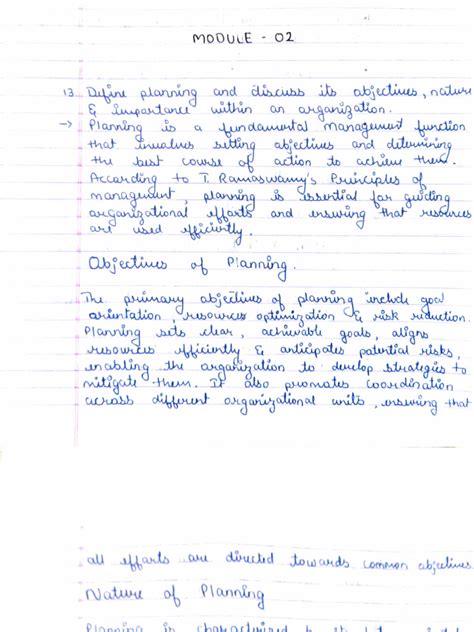 MODULE - 02
13. Define planning and discuss its objectives, nature
& importance within an organization.
→ Planning is a fundamental management function
that involves setting objectives and determining
the best course of action to achieve them.
According to T. Ramaswamy's Principles of
management, planning is essential for guiding
organizational efforts and ensuring that resources
are used efficiently.
Objectives of Planning.
The primary objectives of planning include goal
orientation, resources optimization & risk reduction.
Planning sets clear, achivable goals, aligns
resources efficiently & anticipates potential risks,
enabling the organization to develop strategies to
mitigate them. It also promotes coordination
across different organizational units, ensuring that
all efforts are directed towards common objectives.
Nature of Planning
Planning is characterized